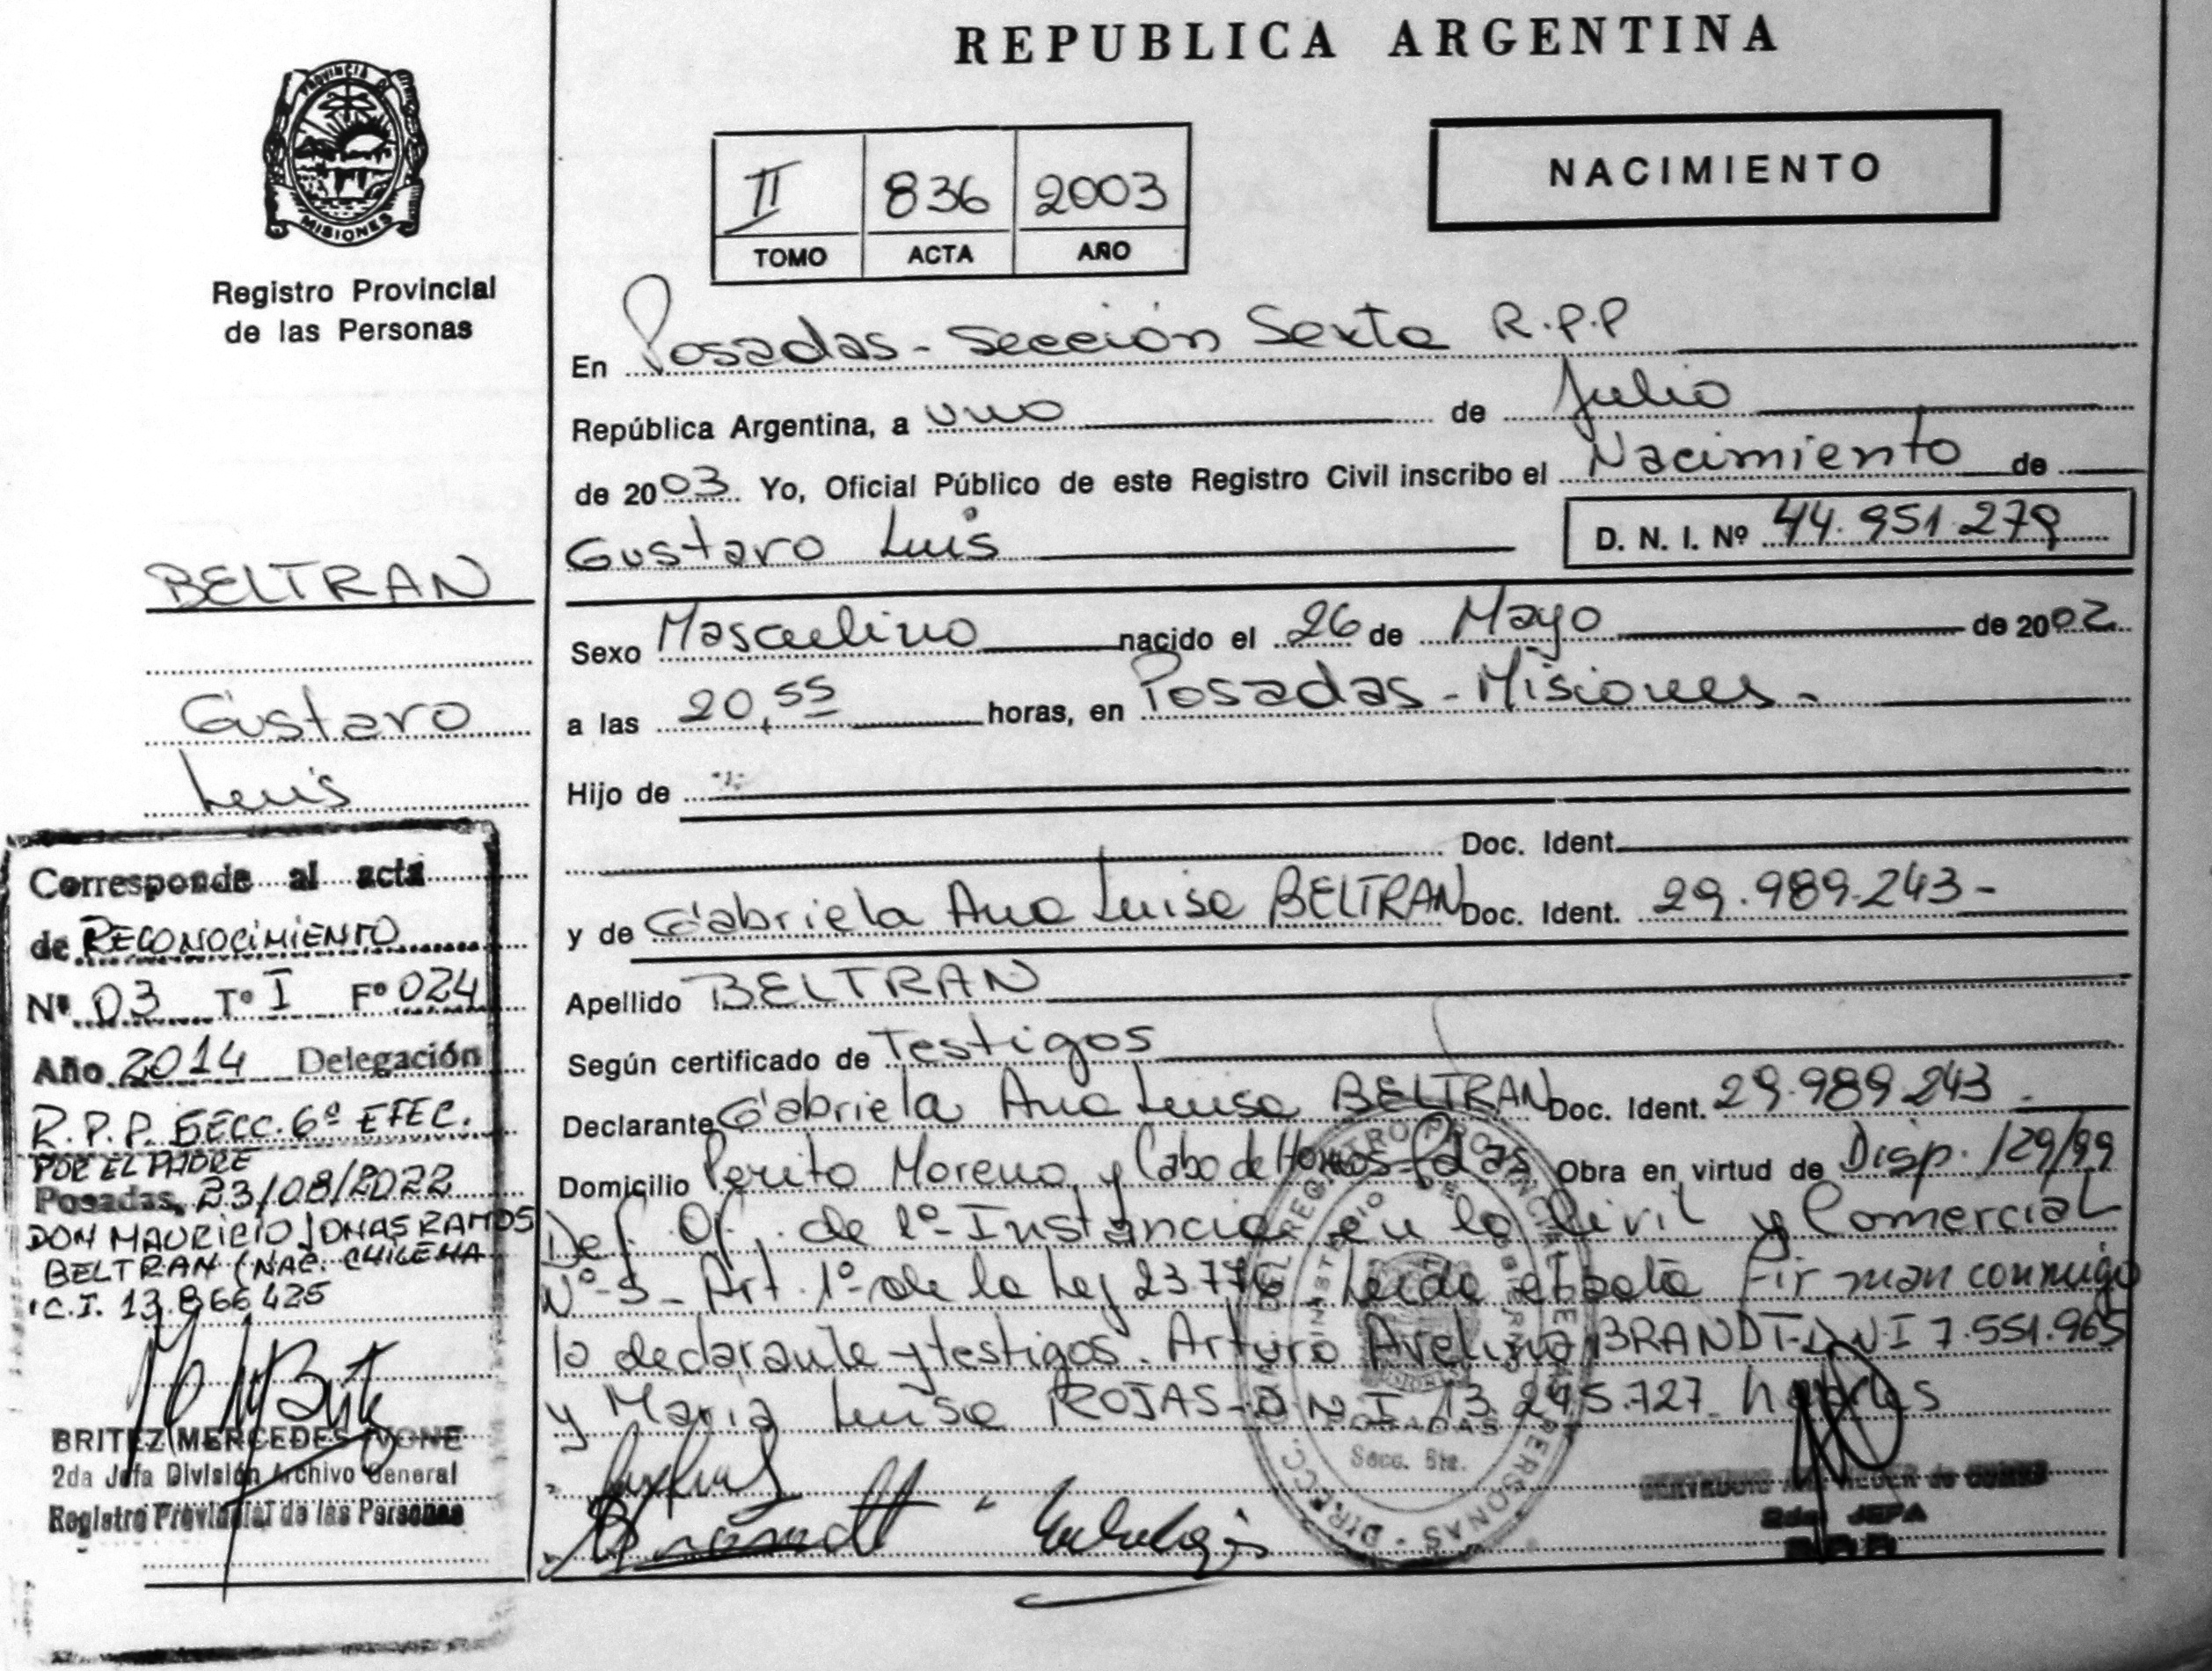 REPUBLICA ARGENTINA
PROVINCIA DE
MISIONES
Registro Provincial
de las Personas
NACIMIENTO
II 836 2003
TOMO ACTA AÑO
En Posadas - Sección Sexta R.P.P
República Argentina, a uno de Julio
de 2003 Yo, Oficial Público de este Registro Civil inscribo el Nacimiento de
Gustavo Luis
D. N. I. Nº 44.951.279
Sexo Masculino nacido el 26 de Mayo de 2002
a las 20,55 horas, en Posadas - Misiones -
Hijo de
Doc. Ident.
y de Gabriela Ana Luisa BELTRAN Doc. Ident. 29.989.243-
Apellido BELTRAN
Según certificado de Testigos
Declarante Gabriela Ana Luisa BELTRAN Doc. Ident. 29.989.243-
Domicilio Perito Moreno y Cabo de Hornos - Pdas Obra en virtud de Disp. 129/99
Def. Of. de 1º Instancia en lo Civil y Comercial
Nº-3- Art. 1º de la Ley 23.776. Leída el acta Firman conmigo
la declarante y testigos. Arturo Avelino BRANDT-D.N.I 7.551.965
y María Luisa ROJAS-D.N.I 13.245.727
BELTRAN
Gustavo
Luis
Corresponde al acta
de RECONOCIMIENTO
Nº 03 Tº I Fº 024
Año 2014 Delegación
R.P.P. SECC. 6º EFEC.
POR EL PADRE
Posadas, 23/08/2022
DON MAURICIO JONAS RAMOS
BELTRAN (NAC. CHILENA
C.I. 13.866.425
BRITEZ MERCEDES IVONE
2da Jefa División Archivo General
Registro Provincial de las Personas
POSADAS
Secc. 6ta.
Brandt
2da. JEFA
R.P.P.